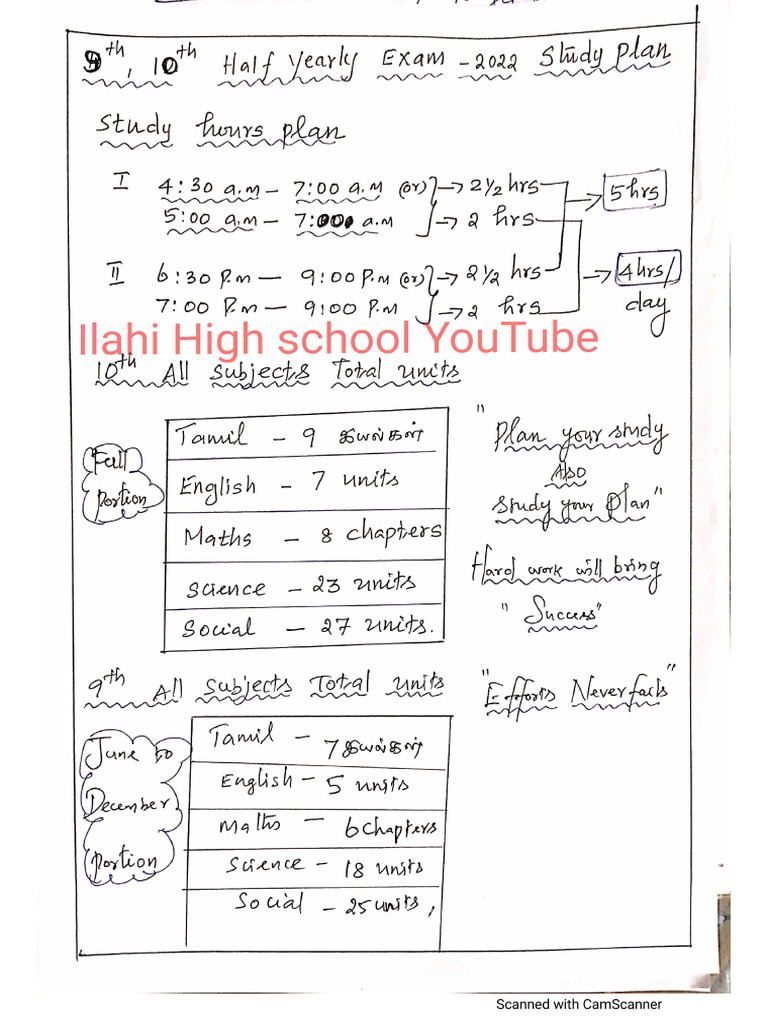 9th, 10th Half Yearly Exam - 2022 Study Plan
Study hours plan
I 4:30 a.m - 7:00 a.m (or) → 2 1/2 hrs → 5 hrs
5:00 a.m - 7:00 a.m → 2 hrs
II 6:30 P.m - 9:00 P.m (or) → 2 1/2 hrs → 4 hrs/
7:00 P.m - 9:00 P.m → 2 hrs day
Ilahi High school YouTube
10th All Subjects Total Units
Full
Portion
Tamil - 9 இயல்கள்
English - 7 units
Maths - 8 chapters
Science - 23 units
Social - 27 units.
"Plan your study
Also
Study your Plan"
Hard work will bring
"Success"
9th All Subjects Total Units
"Efforts Never fails"
June to
December
Portion
Tamil - 7 இயல்கள்
English - 5 units
Maths - 6 chapters
Science - 18 units
Social - 25 units,
Scanned with CamScanner